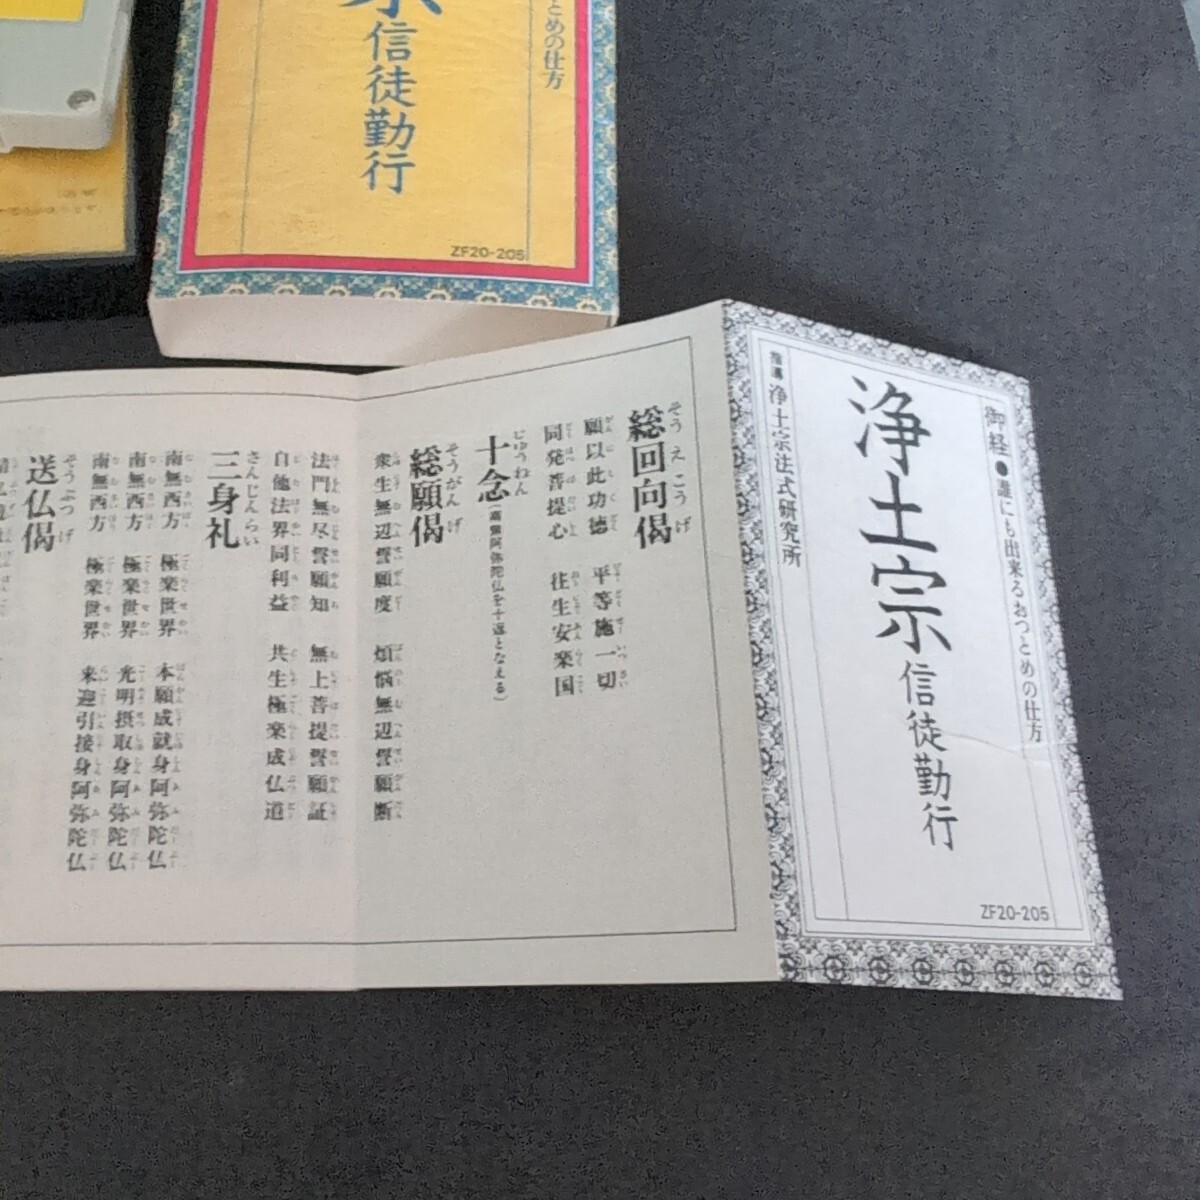 宗信徒勤行
とめの仕方
ZF20-205
御経●誰にも出来るおつとめの仕方
浄土宗信徒勤行
指導 浄土宗法式研究所
ZF20-205
総回向偈
そうえこうげ
願以此功徳 平等施一切
同発菩提心 往生安楽国
十念(南無阿弥陀仏を十返となえる)
じゅうねん
総願偈
そうがんげ
衆生無辺誓願度 煩悩無辺誓願断
法門無尽誓願知 無上菩提誓願証
自他法界同利益 共生極楽成仏道
三身礼
さんじんらい
南無西方 極楽世界 本願成就身阿弥陀仏
南無西方 極楽世界 光明摂取身阿弥陀仏
南無西方 極楽世界 来迎引接身阿弥陀仏
送仏偈
そうぶつげ